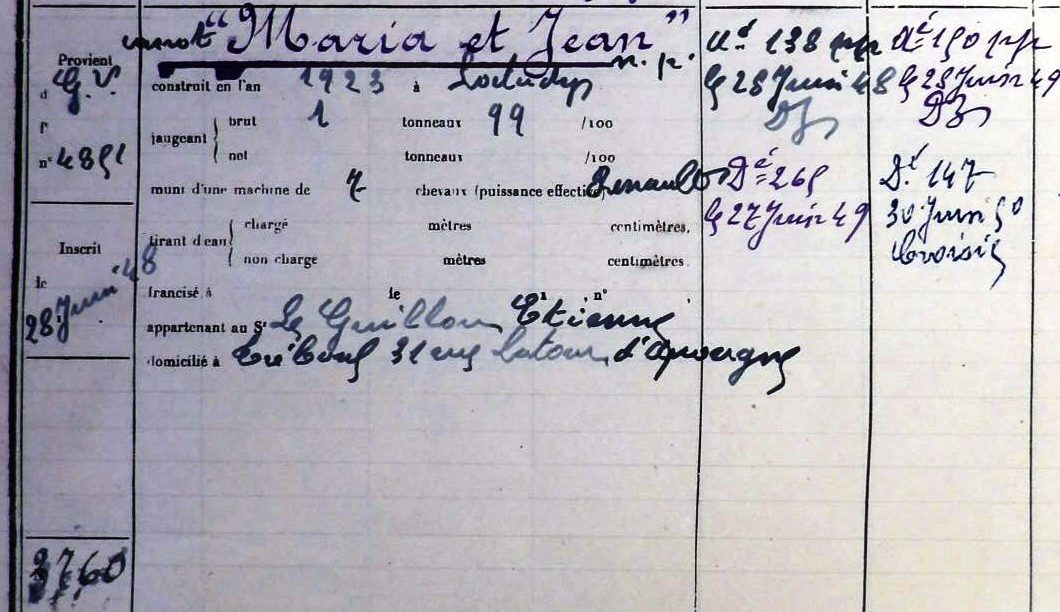 canot "Maria et Jean" n. p.
Provient
d G.V.
f°
n° 4851
construit en l'an 1923 à Loctudy
jaugeant brut 1 tonneaux 99 /100
net tonneaux /100
muni d'une machine de 7 chevaux (puissance effective) Renault
tirant d'eau chargé mètres centimètres.
non chargé mètres centimètres.
francisé à le n° ,
appartenant au Sr Le Guillou Etienne
domicilié à Tréboul 31 rue Latour d'Auvergne
Inscrit
le
28 Juin 48
3760
Aé 138 pp
le 28 Juin 48
Dz
Dé 265
le 27 Juin 49
Aé 150 pp
le 28 Juin 49
Dz
Dé 147
30 Juin 50